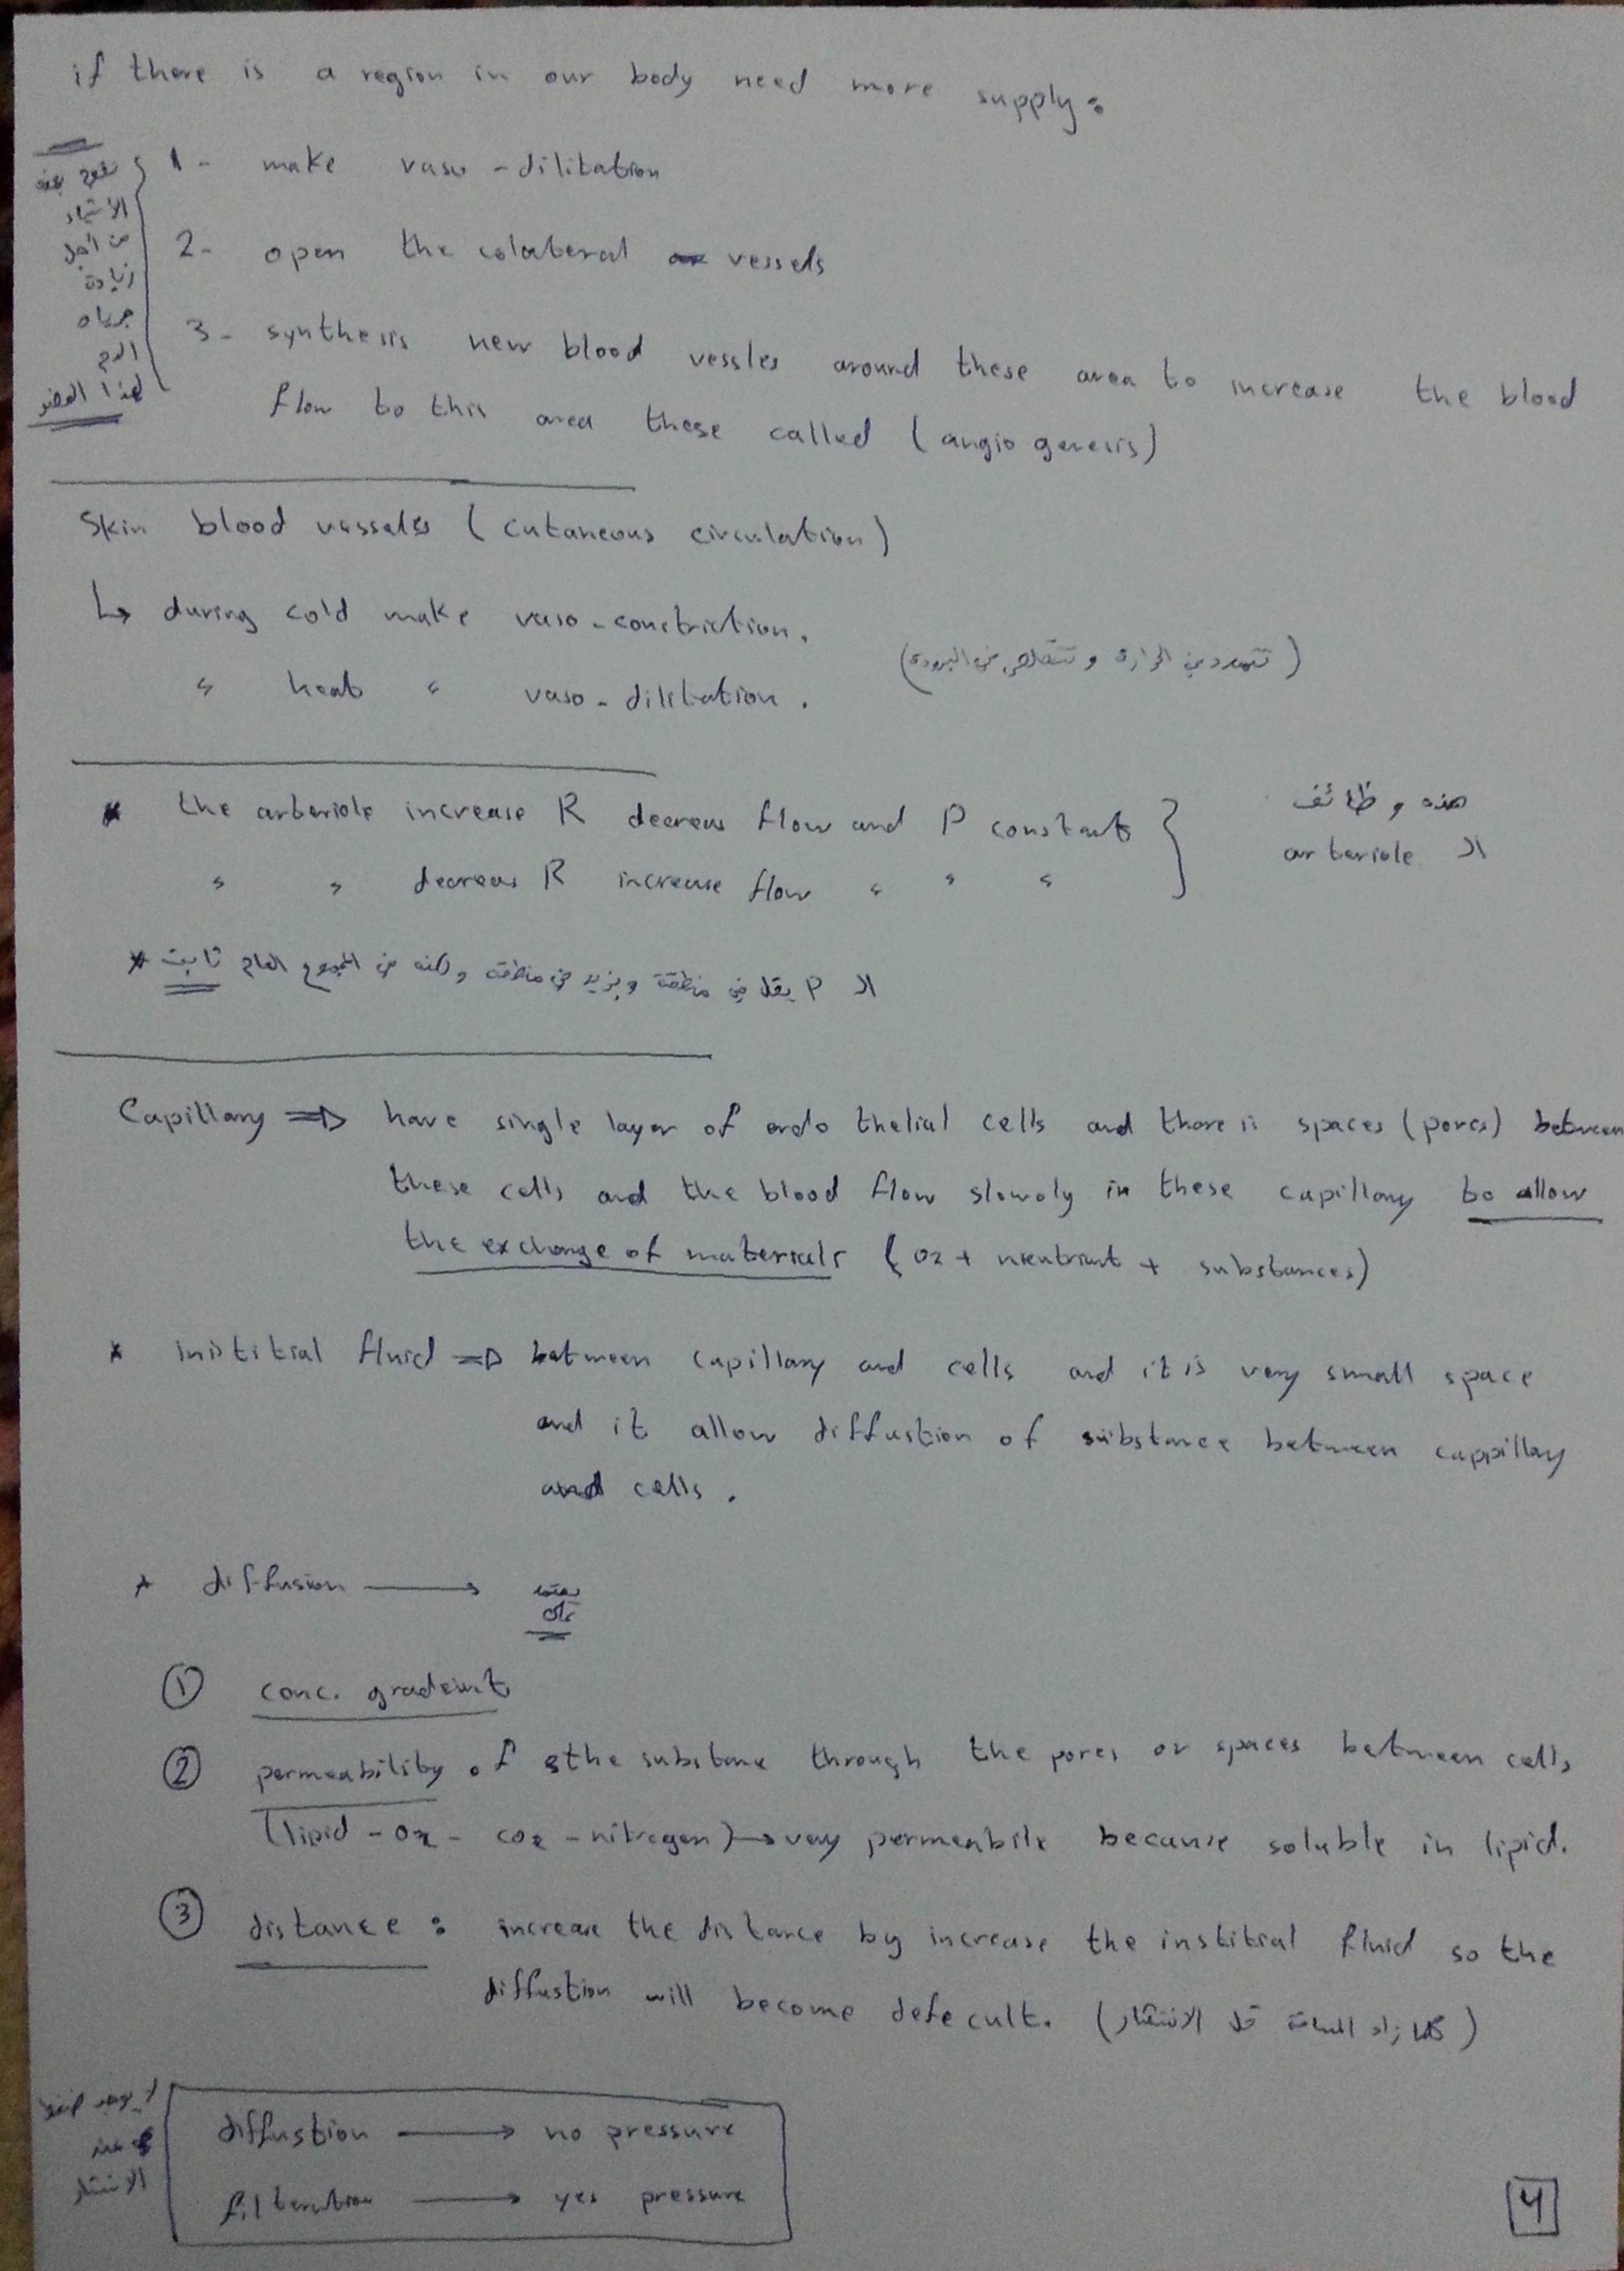 if there is a region in our body need more supply:
1- make vaso-dilitation
2- open the colateral vessels
3- synthesis new blood vessles around these area to increase the blood
flow to this area these called (angio genesis)
نقوم بهذه
الأشياء
من أجل
زيادة
جريان
الدم
لهذا العضو
Skin blood vassales (cutaneous circulation)
↳ during cold make vaso-constriction.
" heat " vaso-dilitation.
(تتمدد في الحرارة و تتقلص في البرودة)
* the arteriole increase R decreas flow and P constant
" " decreas R increase flow " " "
هذه وظائف
الـ arteriole
* الـ P يقل في منطقة ويزيد في منطقة ولكنه في المجموع العام ثابت
Capillary ⇒ have single layer of endo thelial cells and there is spaces (pores) between
these cells and the blood flow slowly in these capillary to allow
the exchange of materials (O2 + nieutriant + substances)
* inistitial fluid ⇒ between capillary and cells and it is very small space
and it allow diffustion of substance between cappillary
and cells.
* diffusion → يعتمد
على
① conc. gradeint
② permeability of the substane through the pores or spaces between cells
(lipid - O2 - CO2 - nitrogen) → very permeabile because soluble in lipid.
③ distance: increase the distance by increase the institial fluid so the
diffustion will become defecult. (كلما زاد المسافة قل الانتشار)
لا يوجد ضغط
عند
الانتشار
diffustion → no pressure
filteration → yes pressure
4